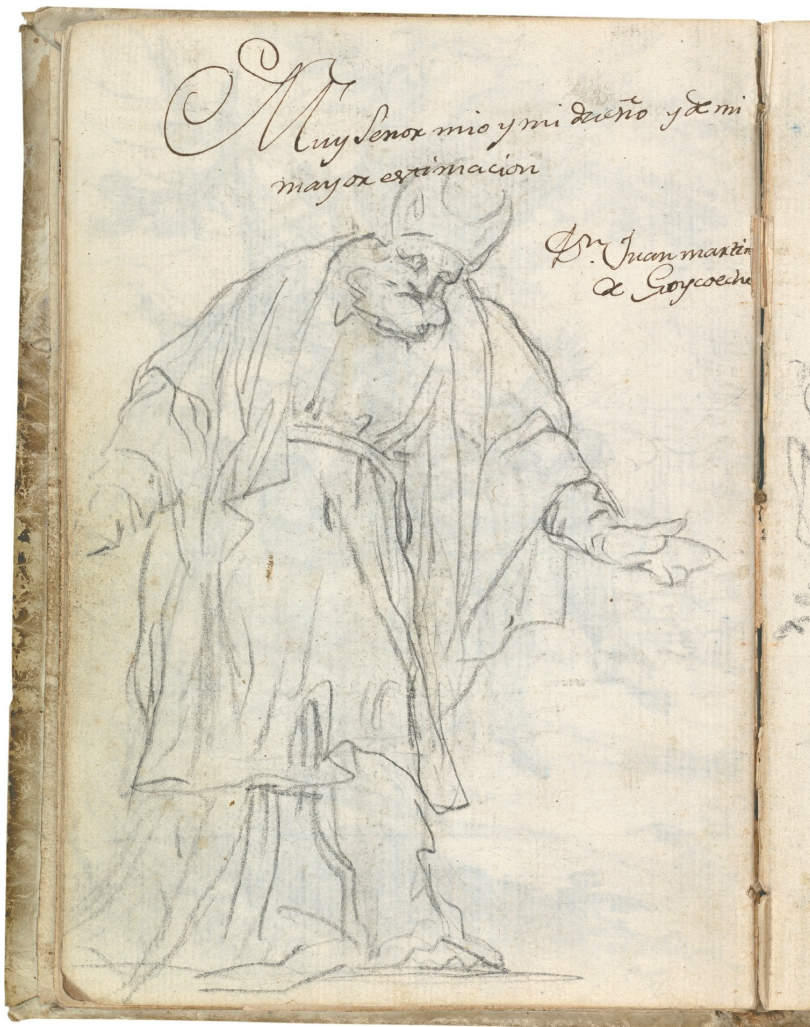 Muy Senor mio y mi dueño y de mi
mayor estimacion
Dn. Juan martin
de Goycoeche